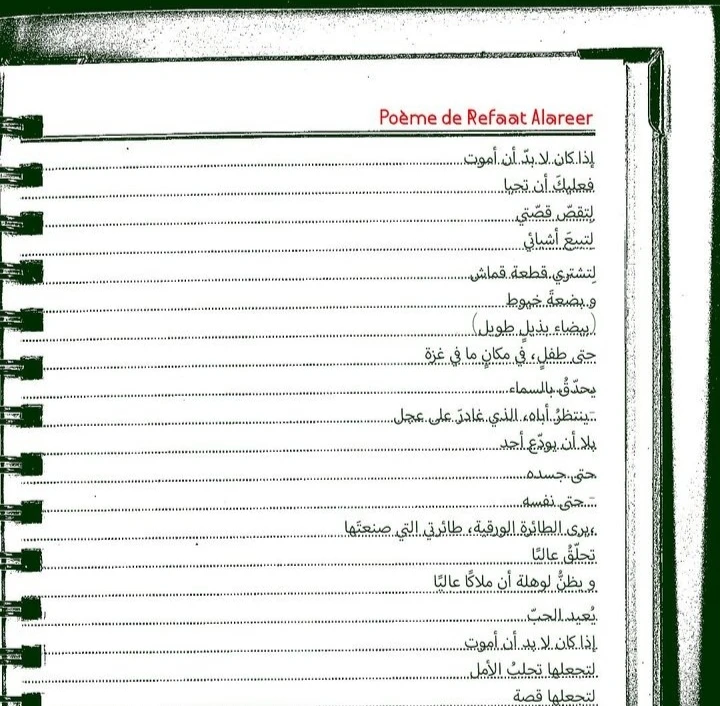 Poème de Refaat Alareer
إذا كان لا بدّ أن أموت
فعليكَ أن تحيا
لِتقصّ قصّتي
لتبيعَ أشيائي
لِتشتري قطعة قماش
و بضعةَ خيوط
(بيضاء بذيلٍ طويل)
حتى طفلٍ، في مكانٍ ما في غزة
يحدّقُ بالسماء
-ينتظرُ أباه، الذي غادرَ على عجل
بلا أن يودّع أحد
حتى جسده
- حتى نفسه
،يرى الطائرة الورقية، طائرتي التي صنعتَها
تحلّقُ عاليًا
و يظنُّ لوهلة أن ملاكًا عاليًا
يُعيد الحبّ
إذا كان لا بد أن أموت
لتجعلها تجلبُ الأمل
لتجعلها قصة